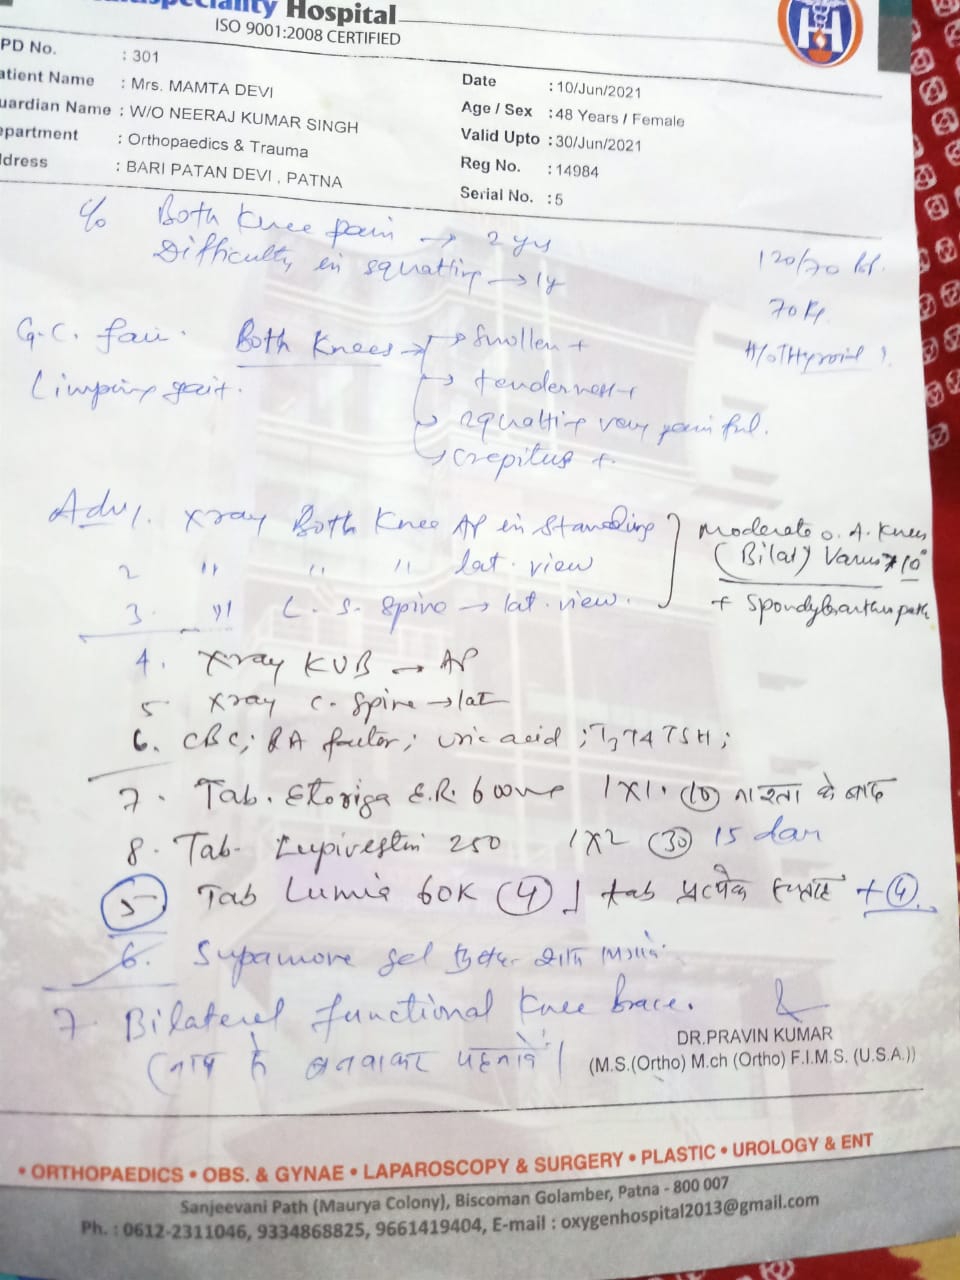 Hospital
ISO 9001:2008 CERTIFIED
PD No. : 301
atient Name : Mrs. MAMTA DEVI
uardian Name : W/O NEERAJ KUMAR SINGH
epartment : Orthopaedics & Trauma
ddress : BARI PATAN DEVI , PATNA
Date : 10/Jun/2021
Age / Sex : 48 Years / Female
Valid Upto : 30/Jun/2021
Reg No. : 14984
Serial No. : 5
c/o Both Knee pain → 2 yrs
Difficulty in squatting → 1y
120/70
70 Kg
H/o Thyroid
G.C. fair. Both Knees → Swollen +
Limping gait. → tenderness +
squatting very painful.
crepitus +
Adv 1. Xray Both Knee AP in Standing
2 " " " lat. view
3. " L. S. Spine → lat. view.
Moderate O. A. Knees
(Bilat) Varus 10°
+ Spondyloarthropathy
4. Xray KUB → AP
5 Xray C. Spine → lat
6. CBC; RA factor; uric acid; T3 T4 TSH;
7. Tab. Etoriga E.R. 600mg 1X1. (10) नाश्ता के बाद
8. Tab- 250 1X2 (30) 15 days
5 Tab Lumia 60K (4) 1 tab प्रत्येक सप्ताह + (4)
6. Supamove gel
7. Bilateral functional Knee brace.
(नाप के बनवाकर पहनना)
DR.PRAVIN KUMAR
(M.S.(Ortho) M.ch (Ortho) F.I.M.S. (U.S.A.))
• ORTHOPAEDICS • OBS. & GYNAE • LAPAROSCOPY & SURGERY • PLASTIC • UROLOGY & ENT
Sanjeevani Path (Maurya Colony), Biscoman Golamber, Patna - 800 007
Ph. : 0612-2311046, 9334868825, 9661419404, E-mail : oxygenhospital2013@gmail.com